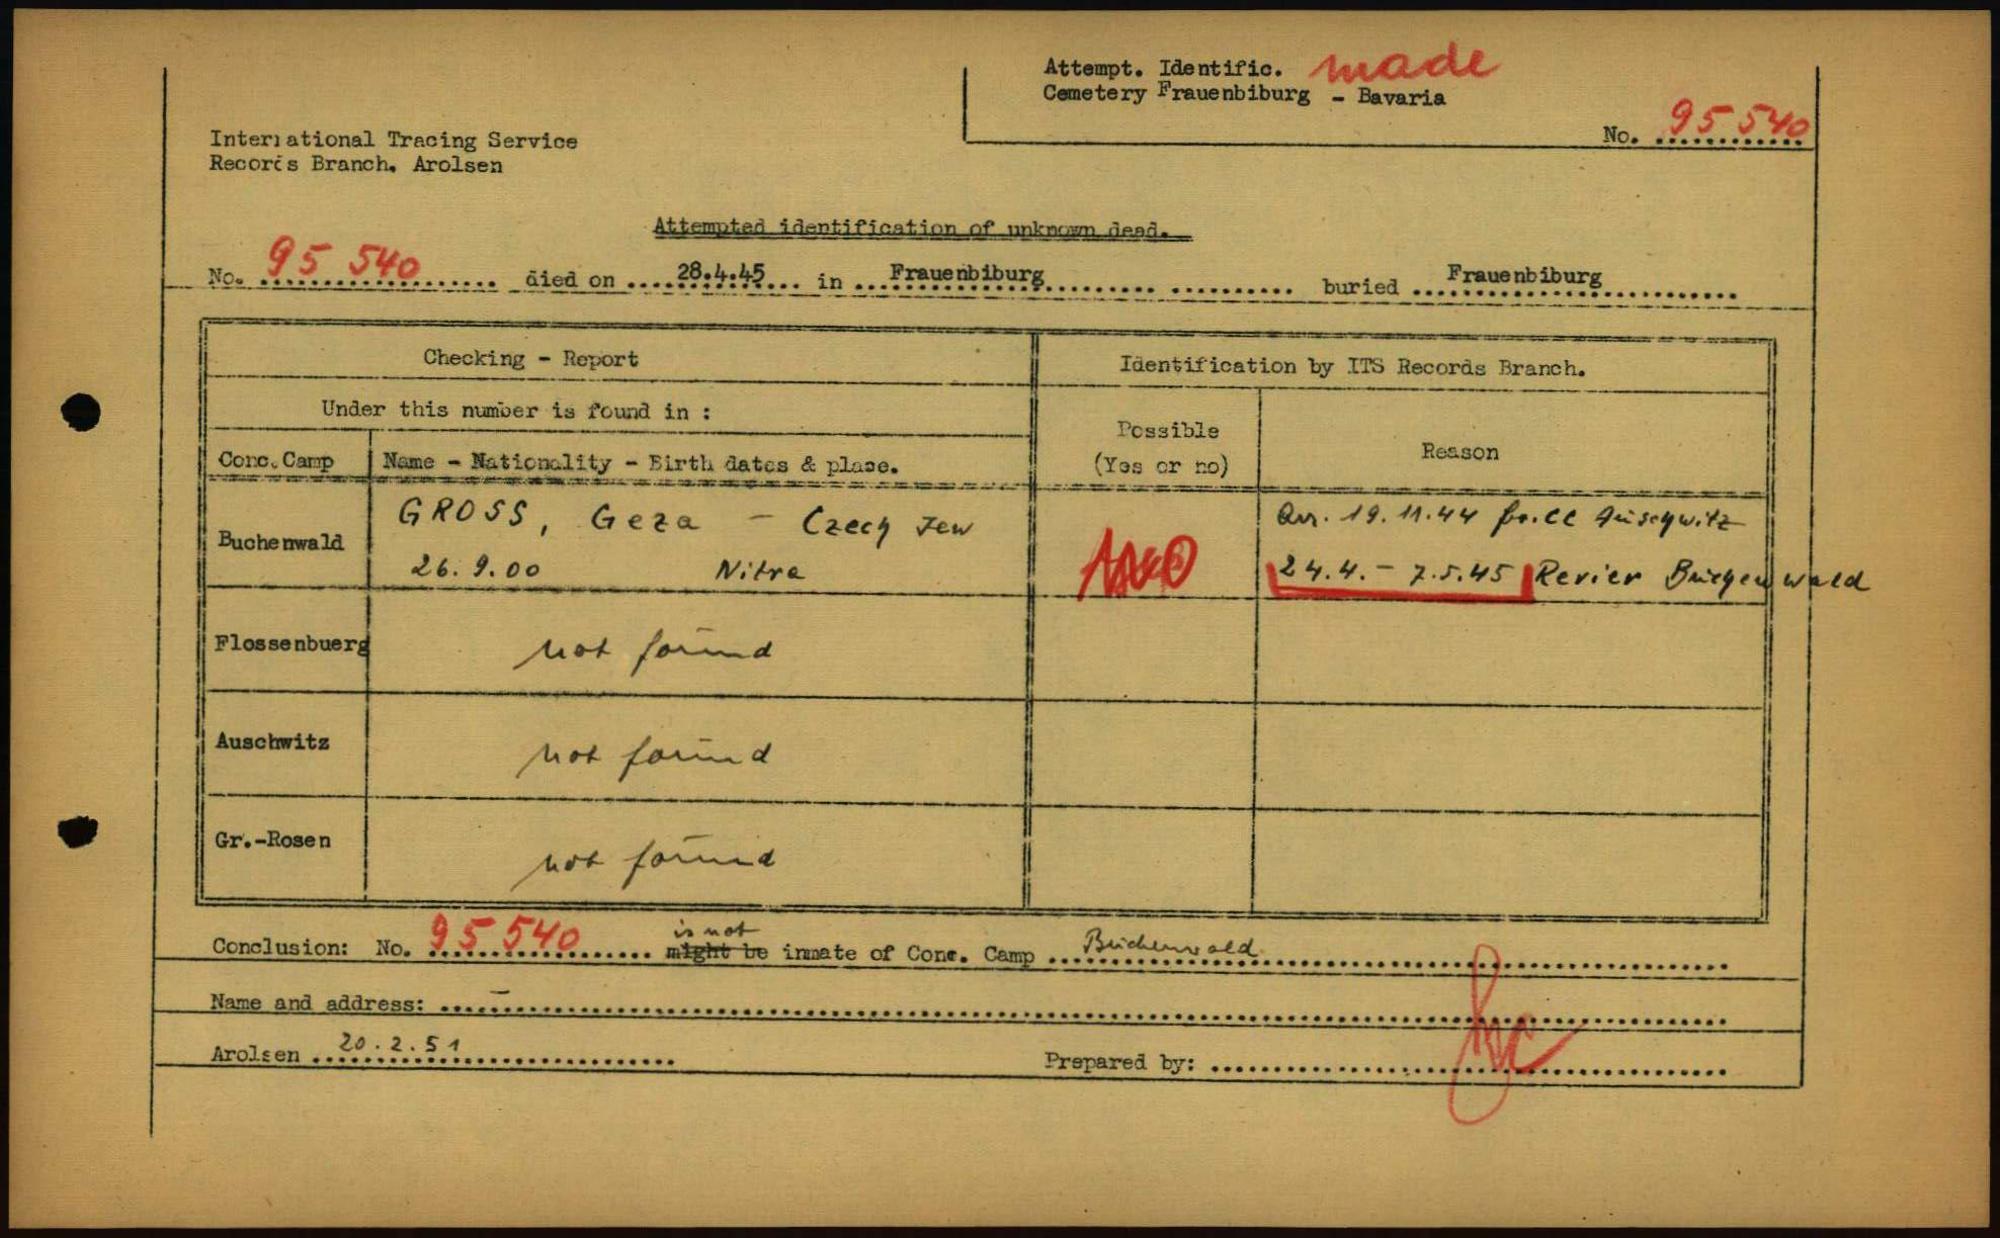 Attempt. Identific. made
Cemetery Frauenbiburg - Bavaria
No. 95 540
International Tracing Service
Records Branch. Arolsen
Attempted identification of unknown dead.
No. 95 540 died on 28.4.45 in Frauenbiburg buried Frauenbiburg
Checking - Report
Identification by ITS Records Branch.
Under this number is found in :
Possible
(Yes or no)
Reason
Conc. Camp
Name - Nationality - Birth dates & place.
Buchenwald
GROSS, Geza - Czech Jew
26.9.00 Nitra
Arr. 19.11.44 fr. CC Auschwitz
24.4. - 7.5.45 Revier Buchenwald
Flossenbuerg
not found
Auschwitz
not found
Gr.-Rosen
not found
is not
Conclusion: No. 95 540 might be inmate of Conc. Camp Buchenwald
Name and address: -
Arolsen 20.2.51
Prepared by: